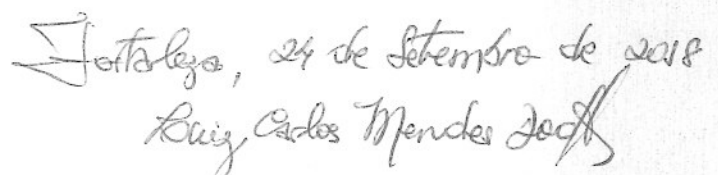 Fortaleza, 24 de Setembro de 2018
Luiz Carlos Mendes